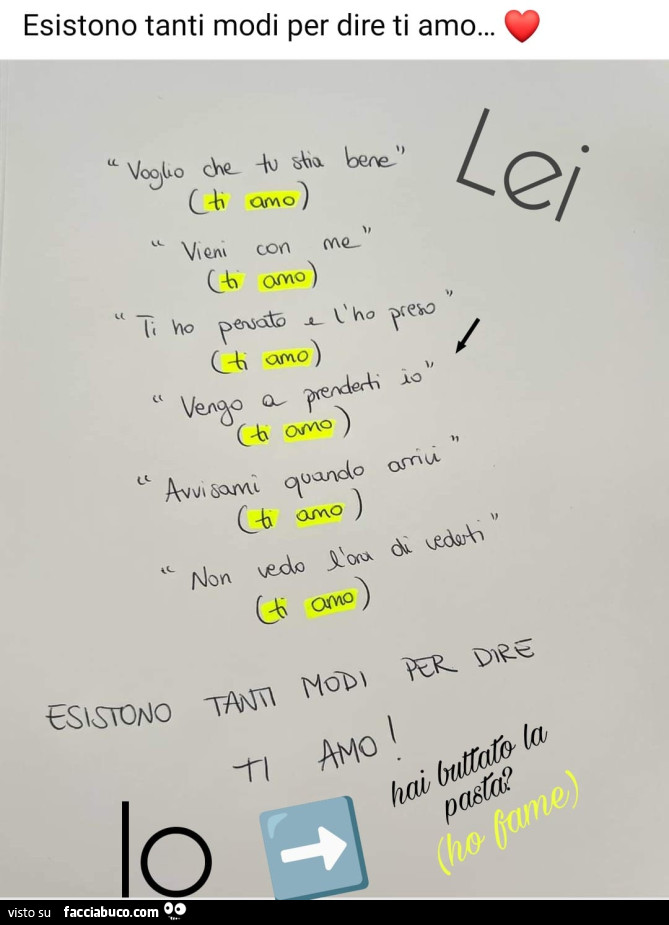 Esistono tanti modi per dire ti amo... ❤️
Lei
"Voglio che tu stia bene"
(ti amo)
"Vieni con me"
(ti amo)
"Ti ho pensato e l'ho preso"
(ti amo)
"Vengo a prenderti io"
(ti amo)
"Avvisami quando arrivi"
(ti amo)
"Non vedo l'ora di vederti"
(ti amo)
ESISTONO TANTI MODI PER DIRE
TI AMO!
hai buttato la
pasta?
(ho fame)
Io ➡️
visto su facciabuco.com